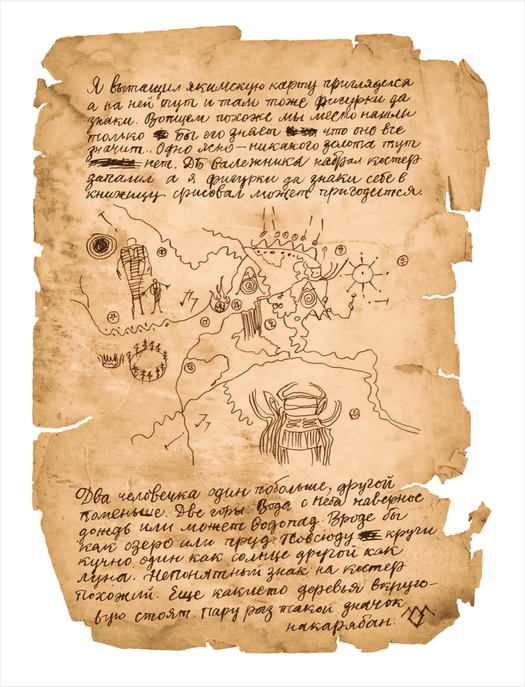 Я вытащил якимскую карту пригляделся
а на ней тут и там тоже фигурки да
знаки. Вопщем похоже мы место нашли
только бы его знает что оно все
значит. Одно ясно – никакого золота тут
нет. ДБ валежника набрал костер
запалил а я фигурки да знаки себе в
книжицу срисовал может пригодится.
Два человечка один побольше, другой
поменьше. Две горы. Вода с неба наверное
дождь или может водопад. Вроде бы
как озеро или пруд. Повсюду круги
кучно один как солнце другой как
луна. Непонятный знак на костер
похожий. Еще какието деревья вкруго-
вую стоят. Пару раз такой значок
накарябан.